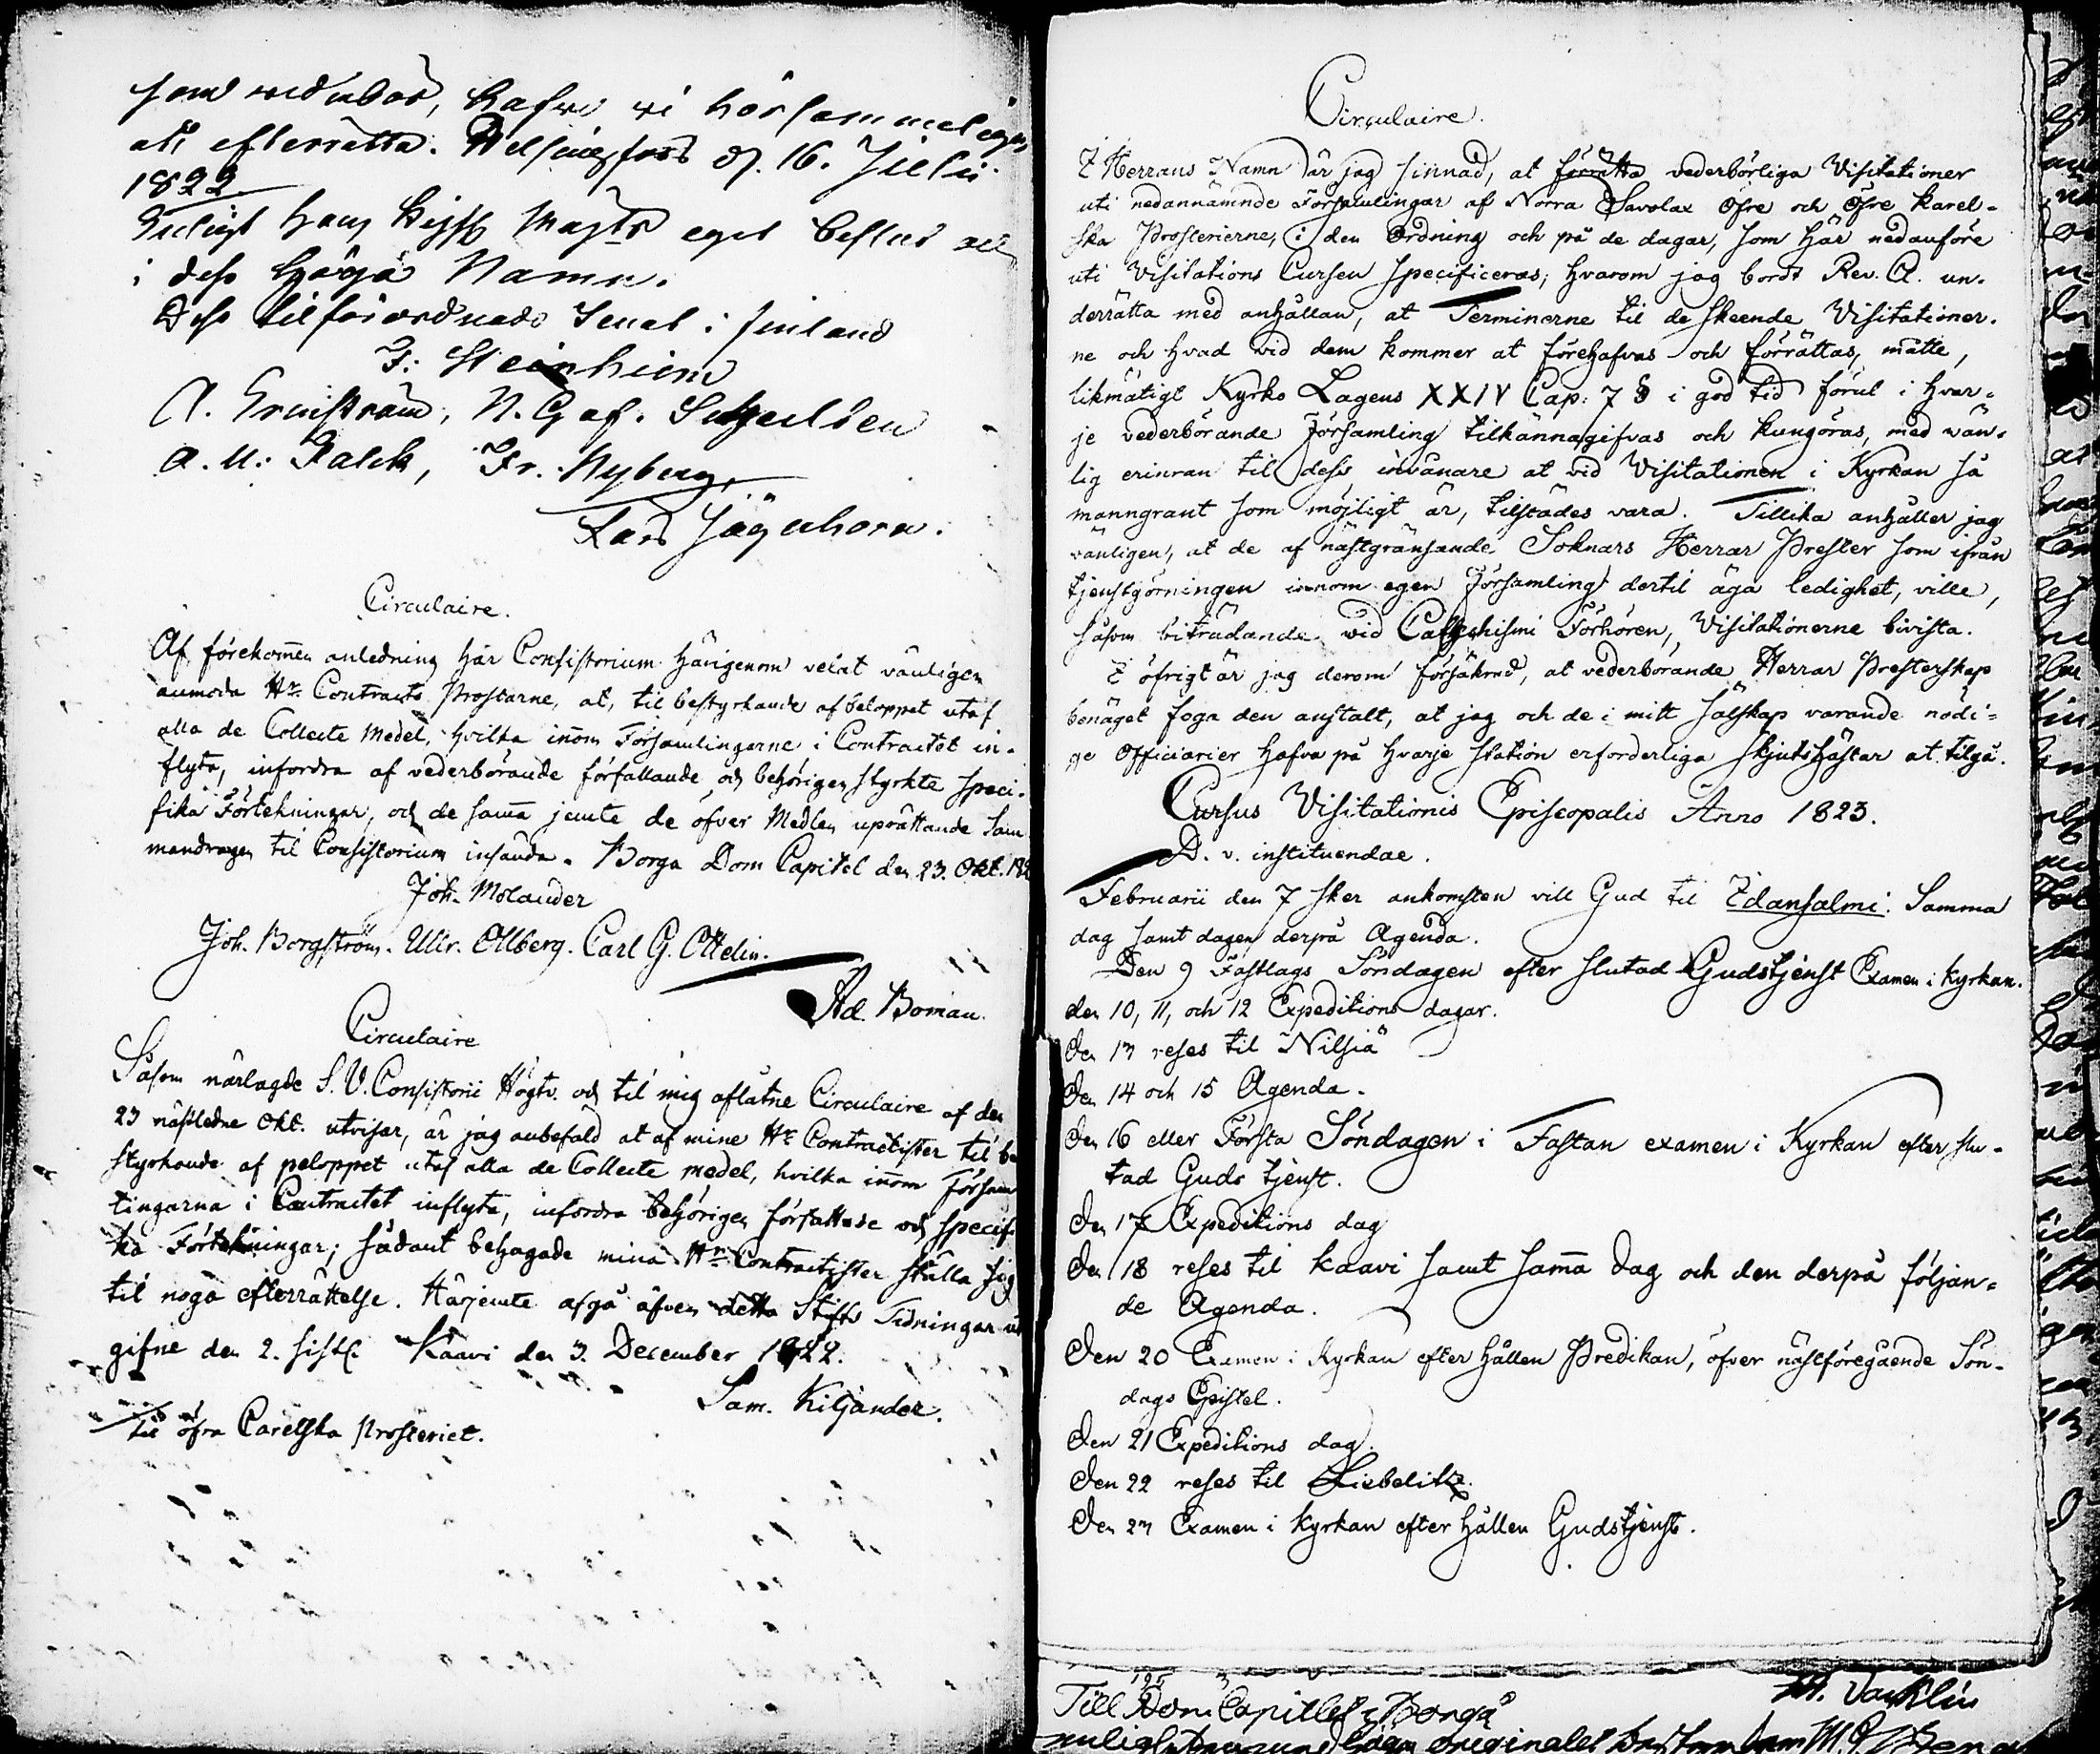 som vedubör, hafve vi hörsammeligen
att efterrätta. Helsingfors d. 16. Julii
1822
Enligt Hans Kejs Majts eget beslut och
i dess höga Namn.
Dess tilförordnade Senat i Finland
F: Steinheim
A. Ernström, N. G af.
A. U: Falck, Fr. Nyberg,
Lars Jägerhorn.
Circulaire.
Af förekom̄en anledning här Consistorium härigenom velat vänligen
anmoda Hr. Contracts Prostarne, at, til bestyrkande af beloppet utaf
alla de Collecte Medel, hvilka in̄om Församlingarne i Contractet in-
flyta, infordra af vederbörande författande och behörigen styrkte speci-
fika Förtekningar, och de sam̄a jemte de öfver Medlen uprättande Sam
mandragen til Consistorium insända. Borgå Dom Capitel den 23. Okt. 182
Joh. Molander
Joh. Borgström. Ullr. Ollberg. Carl G. Ottelin.
Ad. Boman.
Circulaire
Såsom närlagde S. V. Consistorii Högtv. och til mig aflåtne Circulaire af den
23 näsledne Okt. utvisar, är jag anbefald at af mine Hr Contractister til be
styrkande af peloppet utaf alla de Collecte medel, hvilka in̄om Försam
lingarna i Contractet inflyta, infordra behörigen författade och specifi
ka Förtekningar; sådant behagade mina Hrr Contractister ställa sig
til noga efterrättelse. Härjemte afgå äfven detta Stifts Tidningar ut
gifne den 2. sistl. Kaavi den 3. December 1822.
Sam. Kiljander.
Til öfra Carelska Prosteriet.
Circulaire.
I Herrans Namn är jag sinnad, at förrätta vederbörliga Visitationer
uti nedannämnde Församlingar af Norra Savolax öfre och öfre Karel-
ska Prosterierne, i den ordning och på de dagar, som här nedanföre
uti Visitations Cursen specificeras; hvarom jag bordt Rev. A. un-
derrätta med anhållan, at Terminerne til de skeende Visitationer-
ne och hvad vid dem kommer at förehafvas och förrättas, måtte,
likmätigt Kyrko Lagens XXIV Cap: 7 § i god tid förut i hvar-
je vederbörande Församling tilkännagifvas och kungöras, med vän-
lig erinran til dess invånare at vid Visitationen i Kyrkan så
manngrant som möjligt är, tilstädes vara. Tillika anhåller jag
vänligen, at de af nästgränsande Soknars Herrar Prester som ifrån
tjenstgörningen innom egen Församling dertil äga ledighet, ville,
såsom biträdande vid Catechismi Förhören, Visitationerne bivista.
I öfrigt är jag derom försäkrad, at vederbörande Herrar Presterskap
benäget foga den anstalt, at jag och de i mitt sälskap varande nödi-
ge Officiarier hafva på hvarje station erforderliga skjutshästar at tilgå.
Cursus Visitationis Episcopalis Anno 1823.
D. v. instituendae.
Februarii den 7 sker ankomsten vill Gud til Idansalmi. Samma
dag samt dagen derpå Agenda.
Den 9 Fastlags Söndagen efter slutad Gudstjenst Examen i Kyrkan.
den 10, 11, och 12 Expeditions dagar.
den 13 reses til Nilsiä
den 14 och 15 Agenda.
den 16 eller Första Söndagen i Fastan examen i Kyrkan efter slu-
tad Guds tjenst.
den 17 Expeditions dag
den 18 reses til Kaavi samt sam̄a dag och den derpå följan-
de Agenda.
Den 20 Examen i Kyrkan efter hållen Predikan, öfver nästföregående Sön-
dags Epistel.
den 21 Expeditions dag.
den 22 reses til Liebelitz
den 23 Examen i Kyrkan efter hållen Gudstjenst.
Till Dom Capitlet i Borgå